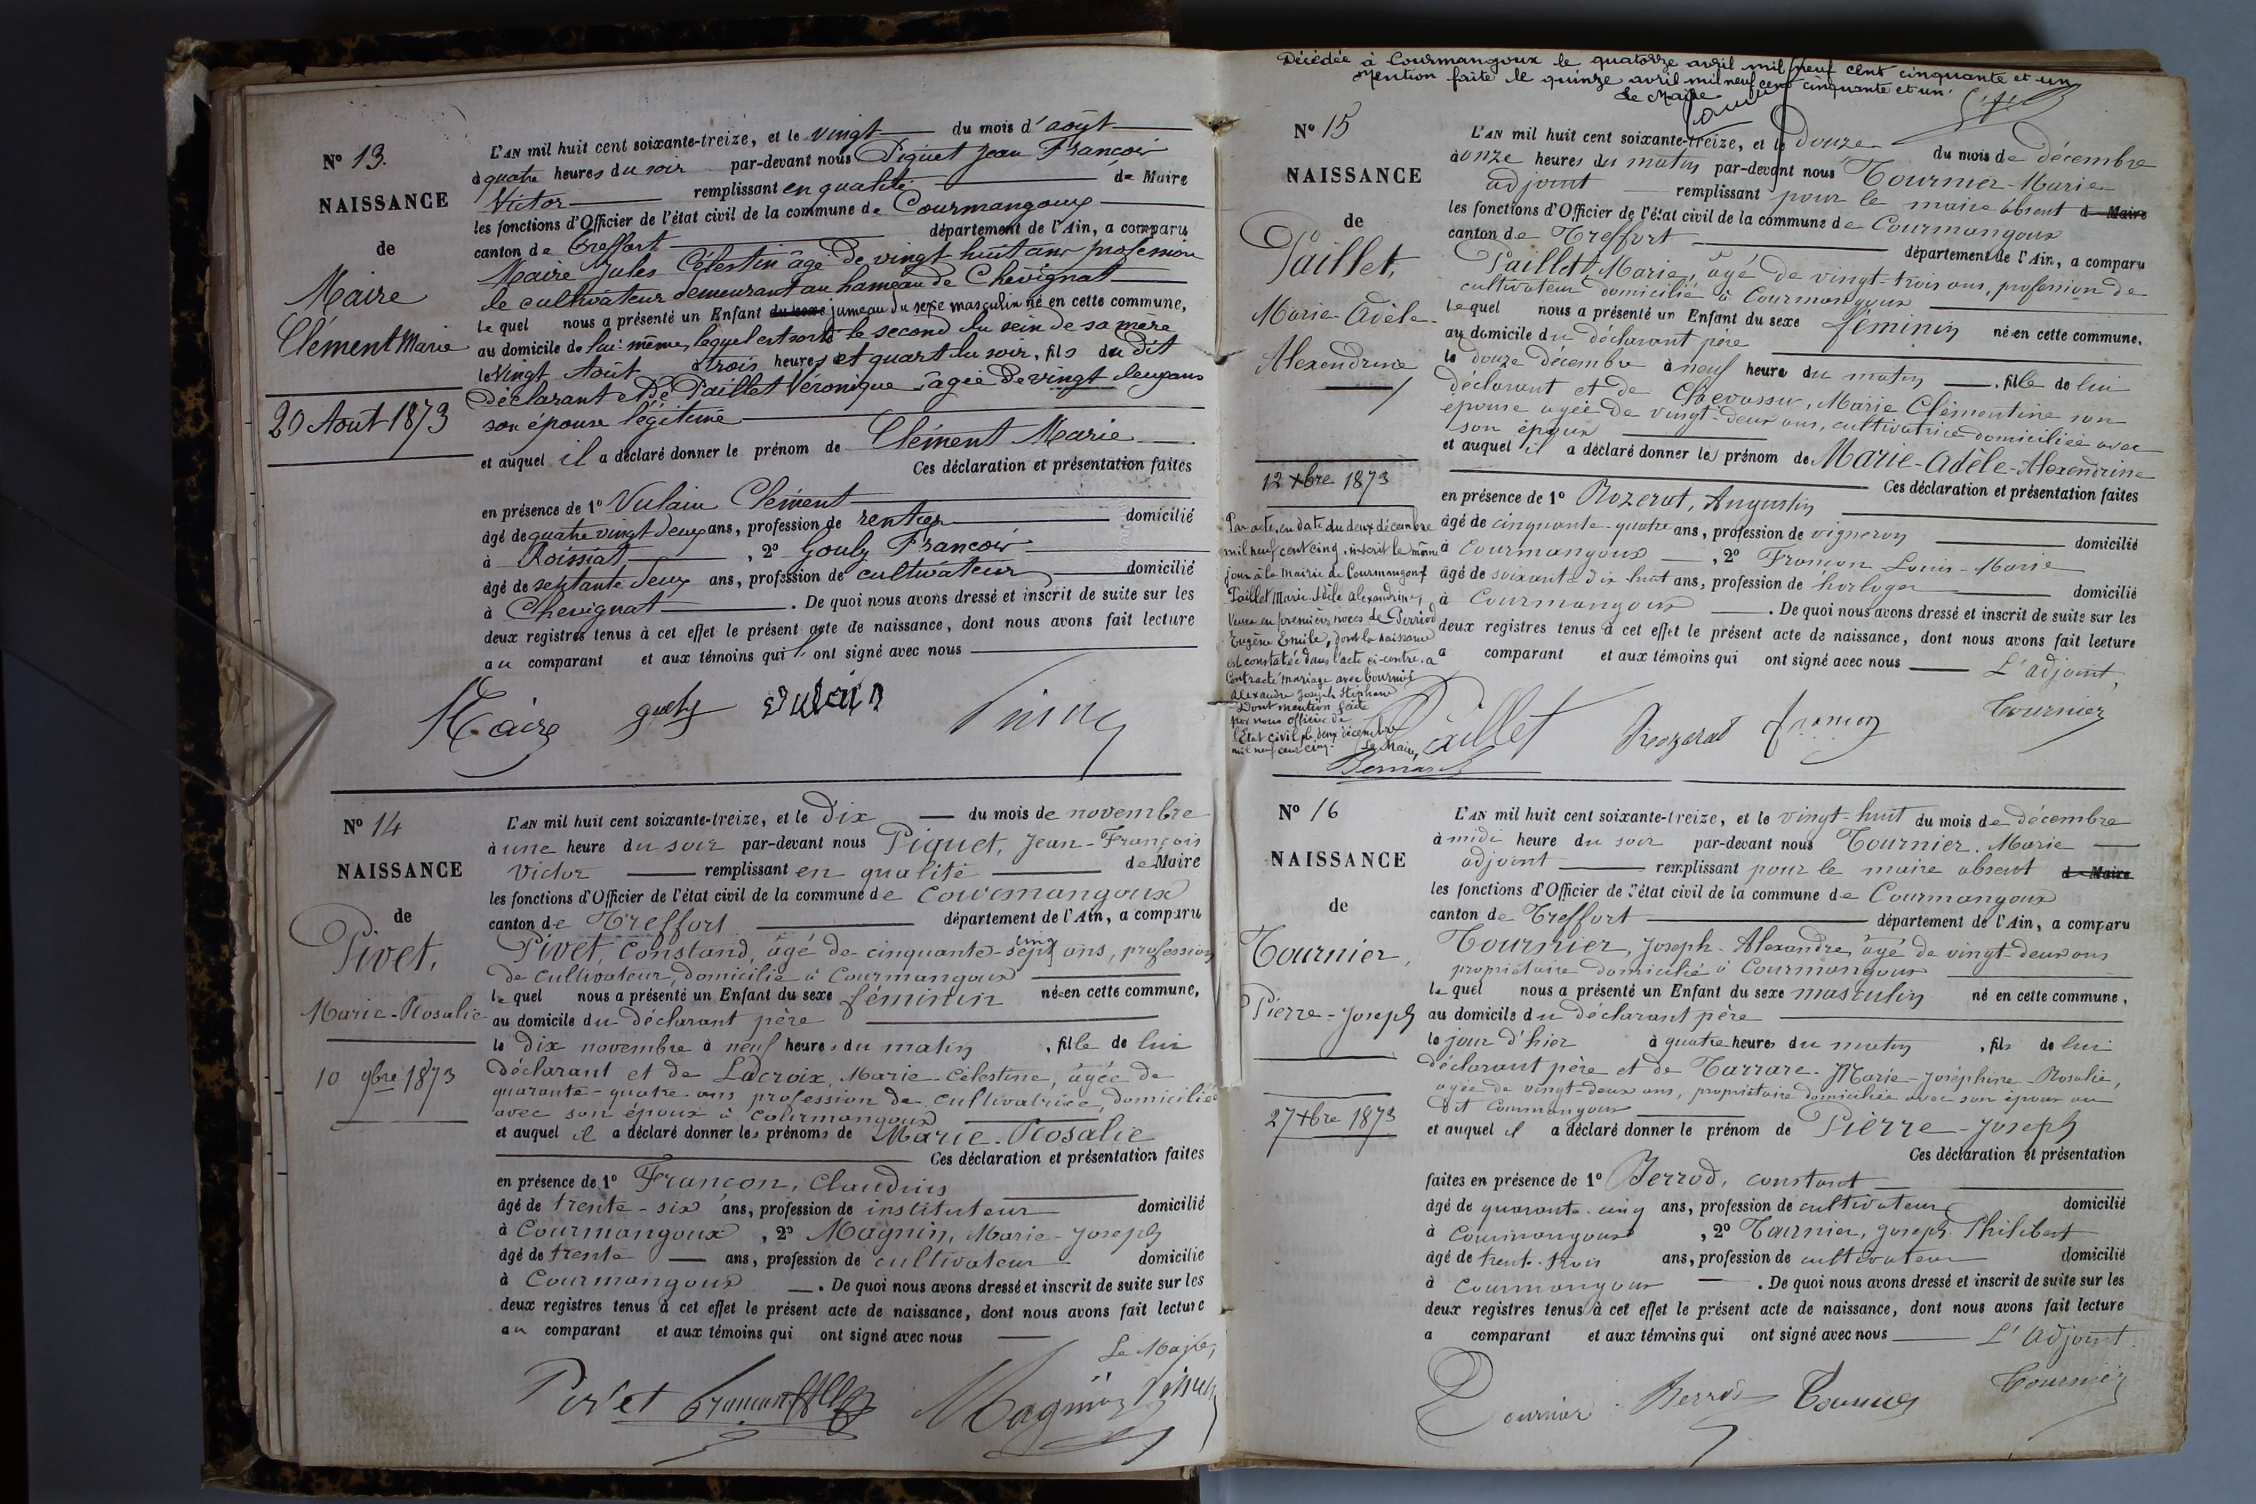 Nº 13.
NAISSANCE
de
Maire
Clément Marie
20 Août 1873
L'AN mil huit cent soixante-treize, et le vingt du mois d'août
à quatre heures du soir par-devant nous Piguet Jean François
Victor remplissant en qualité de Maire
les fonctions d'Officier de l'état civil de la commune de Courmangoux
canton de Treffort département de l'Ain, a comparu
Maire Jules Célestin âgé de vingt huit ans profession
de cultivateur demeurant au hameau de Chevignat
lequel nous a présenté un Enfant du sexe jumeau du sexe masculin né en cette commune,
au domicile de lui-même, lequel est sorti le second du sein de sa mère
le Vingt Août à trois heures et quart du soir, fils du dit
déclarant et de Paillet Véronique âgée de vingt deux ans
son épouse légitime
et auquel il a déclaré donner le prénom de Clément Marie
Ces déclaration et présentation faites
en présence de 1º Vulain Clément
âgé de quatre vingt deux ans, profession de rentier domicilié
à Roissiat, 2º Gouly François
âgé de septante deux ans, profession de cultivateur domicilié
à Chevignat. De quoi nous avons dressé et inscrit de suite sur les
deux registres tenus à cet effet le présent acte de naissance, dont nous avons fait lecture
au comparant et aux témoins qui ont signé avec nous
Maire
Nº 14
NAISSANCE
de
Pivet,
Marie-Rosalie
10 9bre 1873
L'AN mil huit cent soixante-treize, et le dix du mois de novembre
à une heure du soir par-devant nous Piguet, Jean-François
Victor remplissant en qualité de Maire
les fonctions d'Officier de l'état civil de la commune de Courmangoux
canton de Treffort département de l'Ain, a comparu
Pivet, Constand, âgé de cinquante-sept cinq ans, profession
de cultivateur, domicilié à Courmangoux
lequel nous a présenté un Enfant du sexe féminin née en cette commune,
au domicile du déclarant père
le dix novembre à neuf heures du matin, fille de lui
déclarant et de Lacroix, Marie-Célestine, âgée de
quarante-quatre ans profession de cultivatrice, domiciliée
avec son époux à Courmangoux
et auquel il a déclaré donner les prénoms de Marie-Rosalie
Ces déclaration et présentation faites
en présence de 1º Françon, Claudius
âgé de trente-six ans, profession de instituteur domicilié
à Courmangoux, 2º Magnin, Marie-Joseph
âgé de trente ans, profession de cultivateur domicilié
à Courmangoux. De quoi nous avons dressé et inscrit de suite sur les
deux registres tenus à cet effet le présent acte de naissance, dont nous avons fait lecture
au comparant et aux témoins qui ont signé avec nous
Le Maire,
Pivet Françon Magnin
Décédée à Courmangoux le quatorze avril mil neuf cent cinquante et un
Mention faite le quinze avril mil neuf cent cinquante et un.
Le Maire
Nº 15
NAISSANCE
de
Paillet,
Marie-Adèle-
Alexendrine
12 Xbre 1873
Par acte en date du deux décembre
mil neuf cent cinq, inscrit le même
jour à la Mairie de Courmangoux
Paillet Marie Adèle Alexandrine,
Veuve en premières noces de Perriod
Eugène Emile, dont la naissance
est constatée dans l'acte ci-contre, a
contracté mariage avec Cournier
Alexandre Joseph Stéphane
Dont mention faite
par nous officier de
l'Etat civil le deux décembre
mil neuf cent cinq.
Le Maire,
L'AN mil huit cent soixante-treize, et le douze du mois de décembre
à onze heures du matin par-devant nous Tournier-Marie
adjoint remplissant pour le maire absent de Maire
les fonctions d'Officier de l'état civil de la commune de Courmangoux
canton de Treffort département de l'Ain, a comparu
Paillet, Marie, âgé de vingt-trois ans, profession de
cultivateur domicilié à Courmangoux
lequel nous a présenté un Enfant du sexe féminin née en cette commune,
au domicile du déclarant père
le douze décembre à neuf heure du matin, fille de lui
déclarant et de Chevassu, Marie Clémentine son
épouse âgée de vingt-deux ans, cultivatrice domiciliée avec
son époux
et auquel il a déclaré donner les prénom de Marie-Adèle-Alexendrine
Ces déclaration et présentation faites
en présence de 1º Rozerat, Augustin
âgé de cinquante-quatre ans, profession de vigneron domicilié
à Courmangoux, 2º Françon Louis-Marie
âgé de soixante dix huit ans, profession de horloger domicilié
à Courmangoux. De quoi nous avons dressé et inscrit de suite sur les
deux registres tenus à cet effet le présent acte de naissance, dont nous avons fait lecture
a comparant et aux témoins qui ont signé avec nous L'adjoint,
Paillet Rozerat Françon Tournier
Nº 16
NAISSANCE
de
Tournier,
Pierre-Joseph
27 Xbre 1873
L'AN mil huit cent soixante-treize, et le vingt-huit du mois de décembre
à midi heure du soir par-devant nous Tournier. Marie
adjoint remplissant pour le maire absent de Maire
les fonctions d'Officier de l'état civil de la commune de Courmangoux
canton de Treffort département de l'Ain, a comparu
Tournier, Joseph-Alexandre, âgé de vingt-deux ans
propriétaire domicilié à Courmangoux
lequel nous a présenté un Enfant du sexe masculin né en cette commune,
au domicile du déclarant père
le jour d'hier à quatre heures du matin, fils de lui
déclarant père et de Tarrare-Marie-Joséphine-Rosalie,
âgée de vingt-deux ans, propriétaire domiciliée avec son époux au
dit Courmangoux
et auquel il a déclaré donner le prénom de Pierre-Joseph
Ces déclaration et présentation
faites en présence de 1º Berrod, constant
âgé de quarante-cinq ans, profession de cultivateur domicilié
à Courmangoux, 2º Tournier, Joseph Philibert
âgé de trente-trois ans, profession de cultivateur domicilié
à Courmangoux. De quoi nous avons dressé et inscrit de suite sur les
deux registres tenus à cet effet le présent acte de naissance, dont nous avons fait lecture
a comparant et aux témoins qui ont signé avec nous L'adjoint.
Tournier Berrod Tournier Tournier